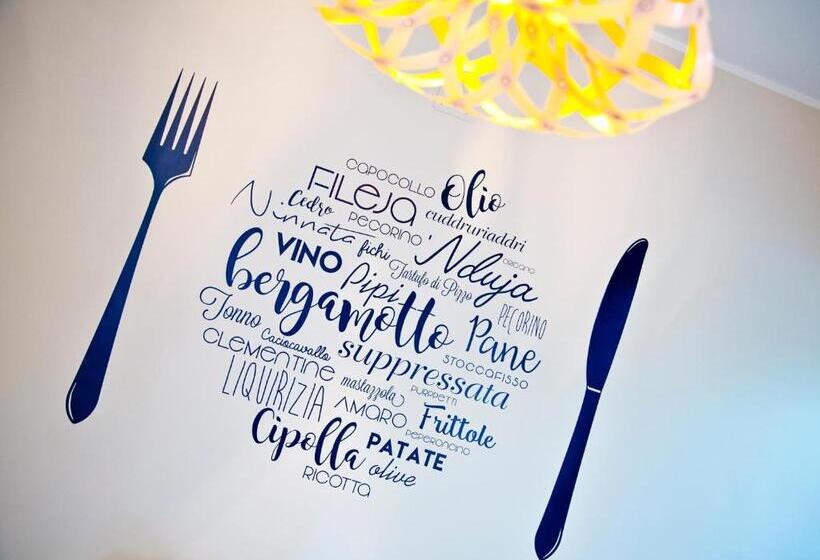 CAPOCOLLO Olio
FILEJA cuddruriaddri
Cedro PECORINO
Ninnata fichi 'Nduja ORIGANO
VINO Pipi Tartufo di Pizzo PECORINO
bergamotto Pane
Tonno Caciocavallo suppressata STOCCAFISSO
CLEMENTINE mastazzola PURPPETTI
LIQUIRIZIA AMARO Frittole
PEPERONCINO
Cipolla PATATE
olive
RICOTTA